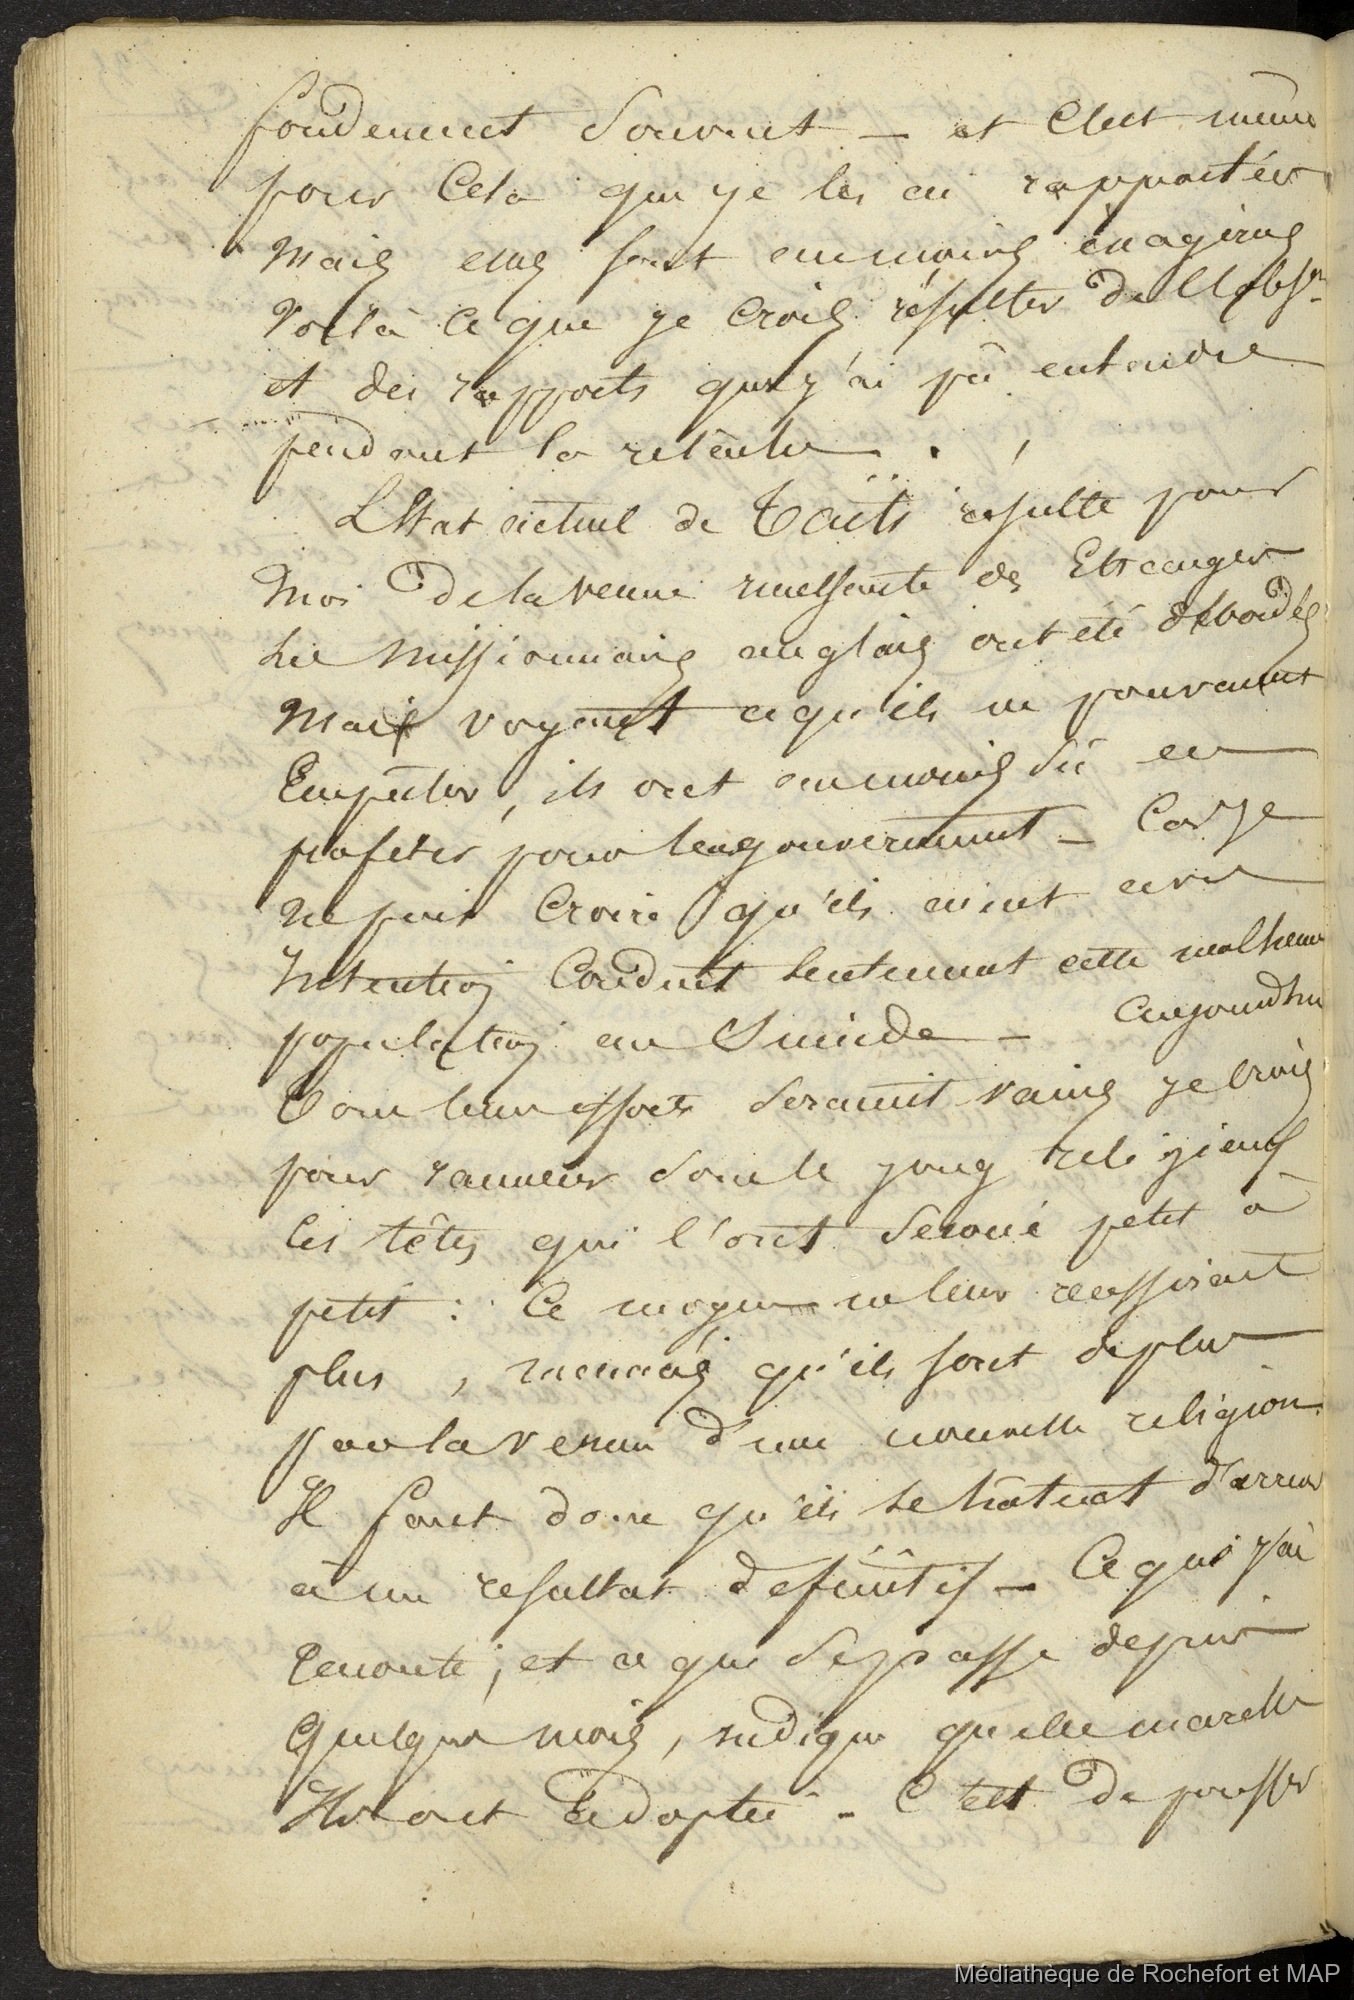 fondement souvent — et c'est même
pour cela que je les ai rapportées
mais elles sont au moins exagérées
voilà ce que je crois résulter de
et des rapports que j'ai pû entendre
pendant la relâche.
L'Etat actuel de Taïti résulte pour
moi de la venue incessante des Etrangers
Les missionnaires anglais ont été débordés
mais voyant ce qu'ils ne pouvaient
Empêcher, ils ont au moins sû en
profiter pour leur gouvernement — Car je
ne puis croire qu'ils aient avec
Intention conduit lentement cette malheure
population au Suicide — aujourdhui
Tous leurs efforts seraient vains je crois
pour ramener sous le joug religieux
les têtes qui l'ont secoué petit à
petit : Ce moyen ne leur réussirait
plus, menacés qu'ils sont de plus
par la venue d'une nouvelle religion.
Il faut donc qu'ils se hâtent d'arriver
à un resultat définitif — Ce que j'ai
raconté, et ce qui se passe depuis
quelques mois, indique quelle marche
Ils ont Adoptée — C'est de pousser
Médiathèque de Rochefort et MAP